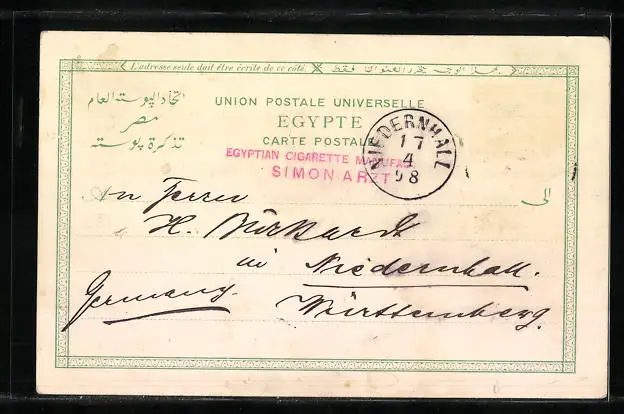 L'adresse seule doit être écrite de ce côté.
هذا الوجه يحرر العنوان فقط
اتحاد البوسته العام
مصر
تذكرة بوسته
UNION POSTALE UNIVERSELLE
EGYPTE
CARTE POSTALE
EGYPTIAN CIGARETTE MANUFAC
SIMON ARZT
NIEDERNHALL
17
4
98
الى
An Herrn
H. Burkhardt
in Niedernhall.
Germany. Württemberg.